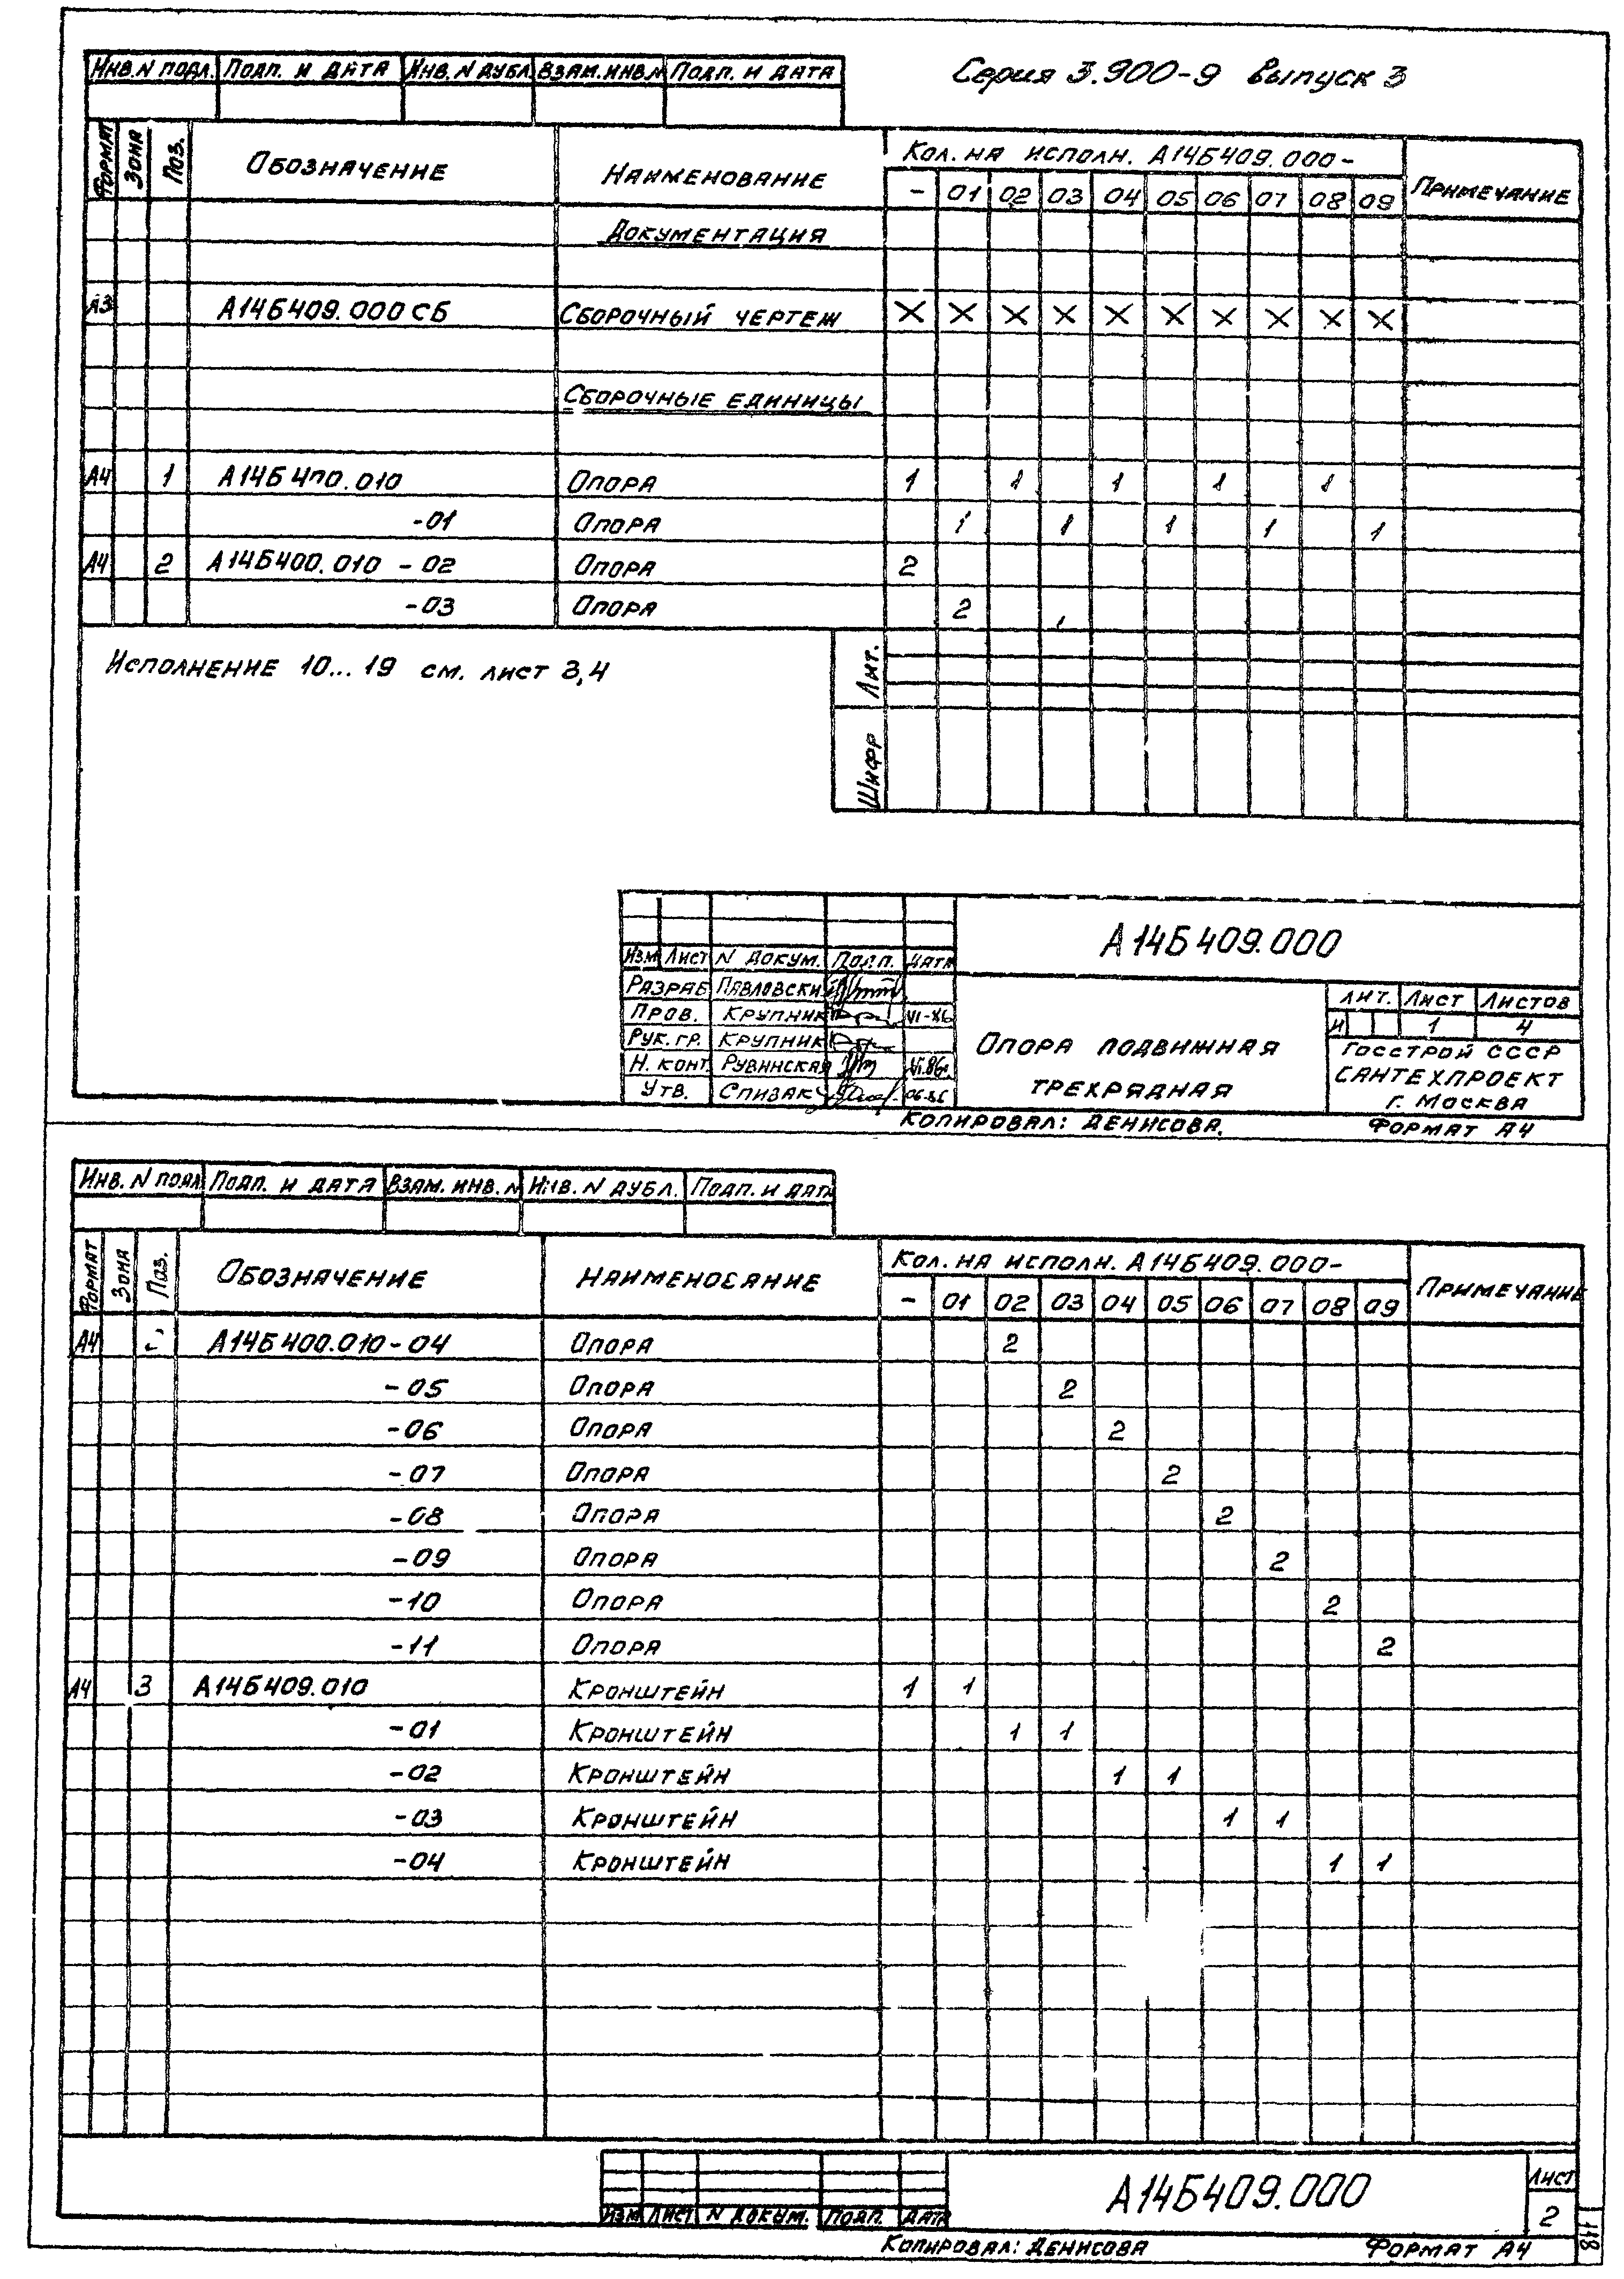 Серия 3.900-9 выпуск 3
Инв. N подл. Подп. и дата Инв. N дубл Взам. инв. N Подп. и дата
Формат Зона Поз. Обозначение Наименование Кол. на исполн. А14Б409.000- Примечание
- 01 02 03 04 05 06 07 08 09
Документация
А3 А14Б409.000 СБ Сборочный чертеж X X X X X X X X X X
Сборочные единицы
А4 1 А14Б400.010 Опора 1 1 1 1 1
-01 Опора 1 1 1 1 1
А4 2 А14Б400.010 -02 Опора 2
-03 Опора 2
Исполнение 10...19 см. лист 3,4
Лит.
Шифр
А14Б409.000
Изм Лист N докум. Подп. Дата
Разраб Павловский
Пров. Крупник VI-86
Рук. гр. Крупник
Н. конт Рувинская VI.86
Утв. Спивак 06.86
Опора подвижная
трехрядная
Лит. Лист Листов
И 1 4
Госстрой СССР
Сантехпроект
г. Москва
Копировал: Денисова. Формат А4
Инв. N подл Подп. и дата Взам. инв. N Инв. N дубл. Подп. и дата
Формат Зона Поз. Обозначение Наименование Кол. на исполн. А14Б409.000- Примечание
- 01 02 03 04 05 06 07 08 09
А4 А14Б400.010-04 Опора 2
-05 Опора 2
-06 Опора 2
-07 Опора 2
-08 Опора 2
-09 Опора 2
-10 Опора 2
-11 Опора 2
А4 3 А14Б409.010 Кронштейн 1 1
-01 Кронштейн 1 1
-02 Кронштейн 1 1
-03 Кронштейн 1 1
-04 Кронштейн 1 1
Изм Лист N докум. Подп. Дата
А14Б409.000
Лист
2
Копировал: Денисова Формат А4
118